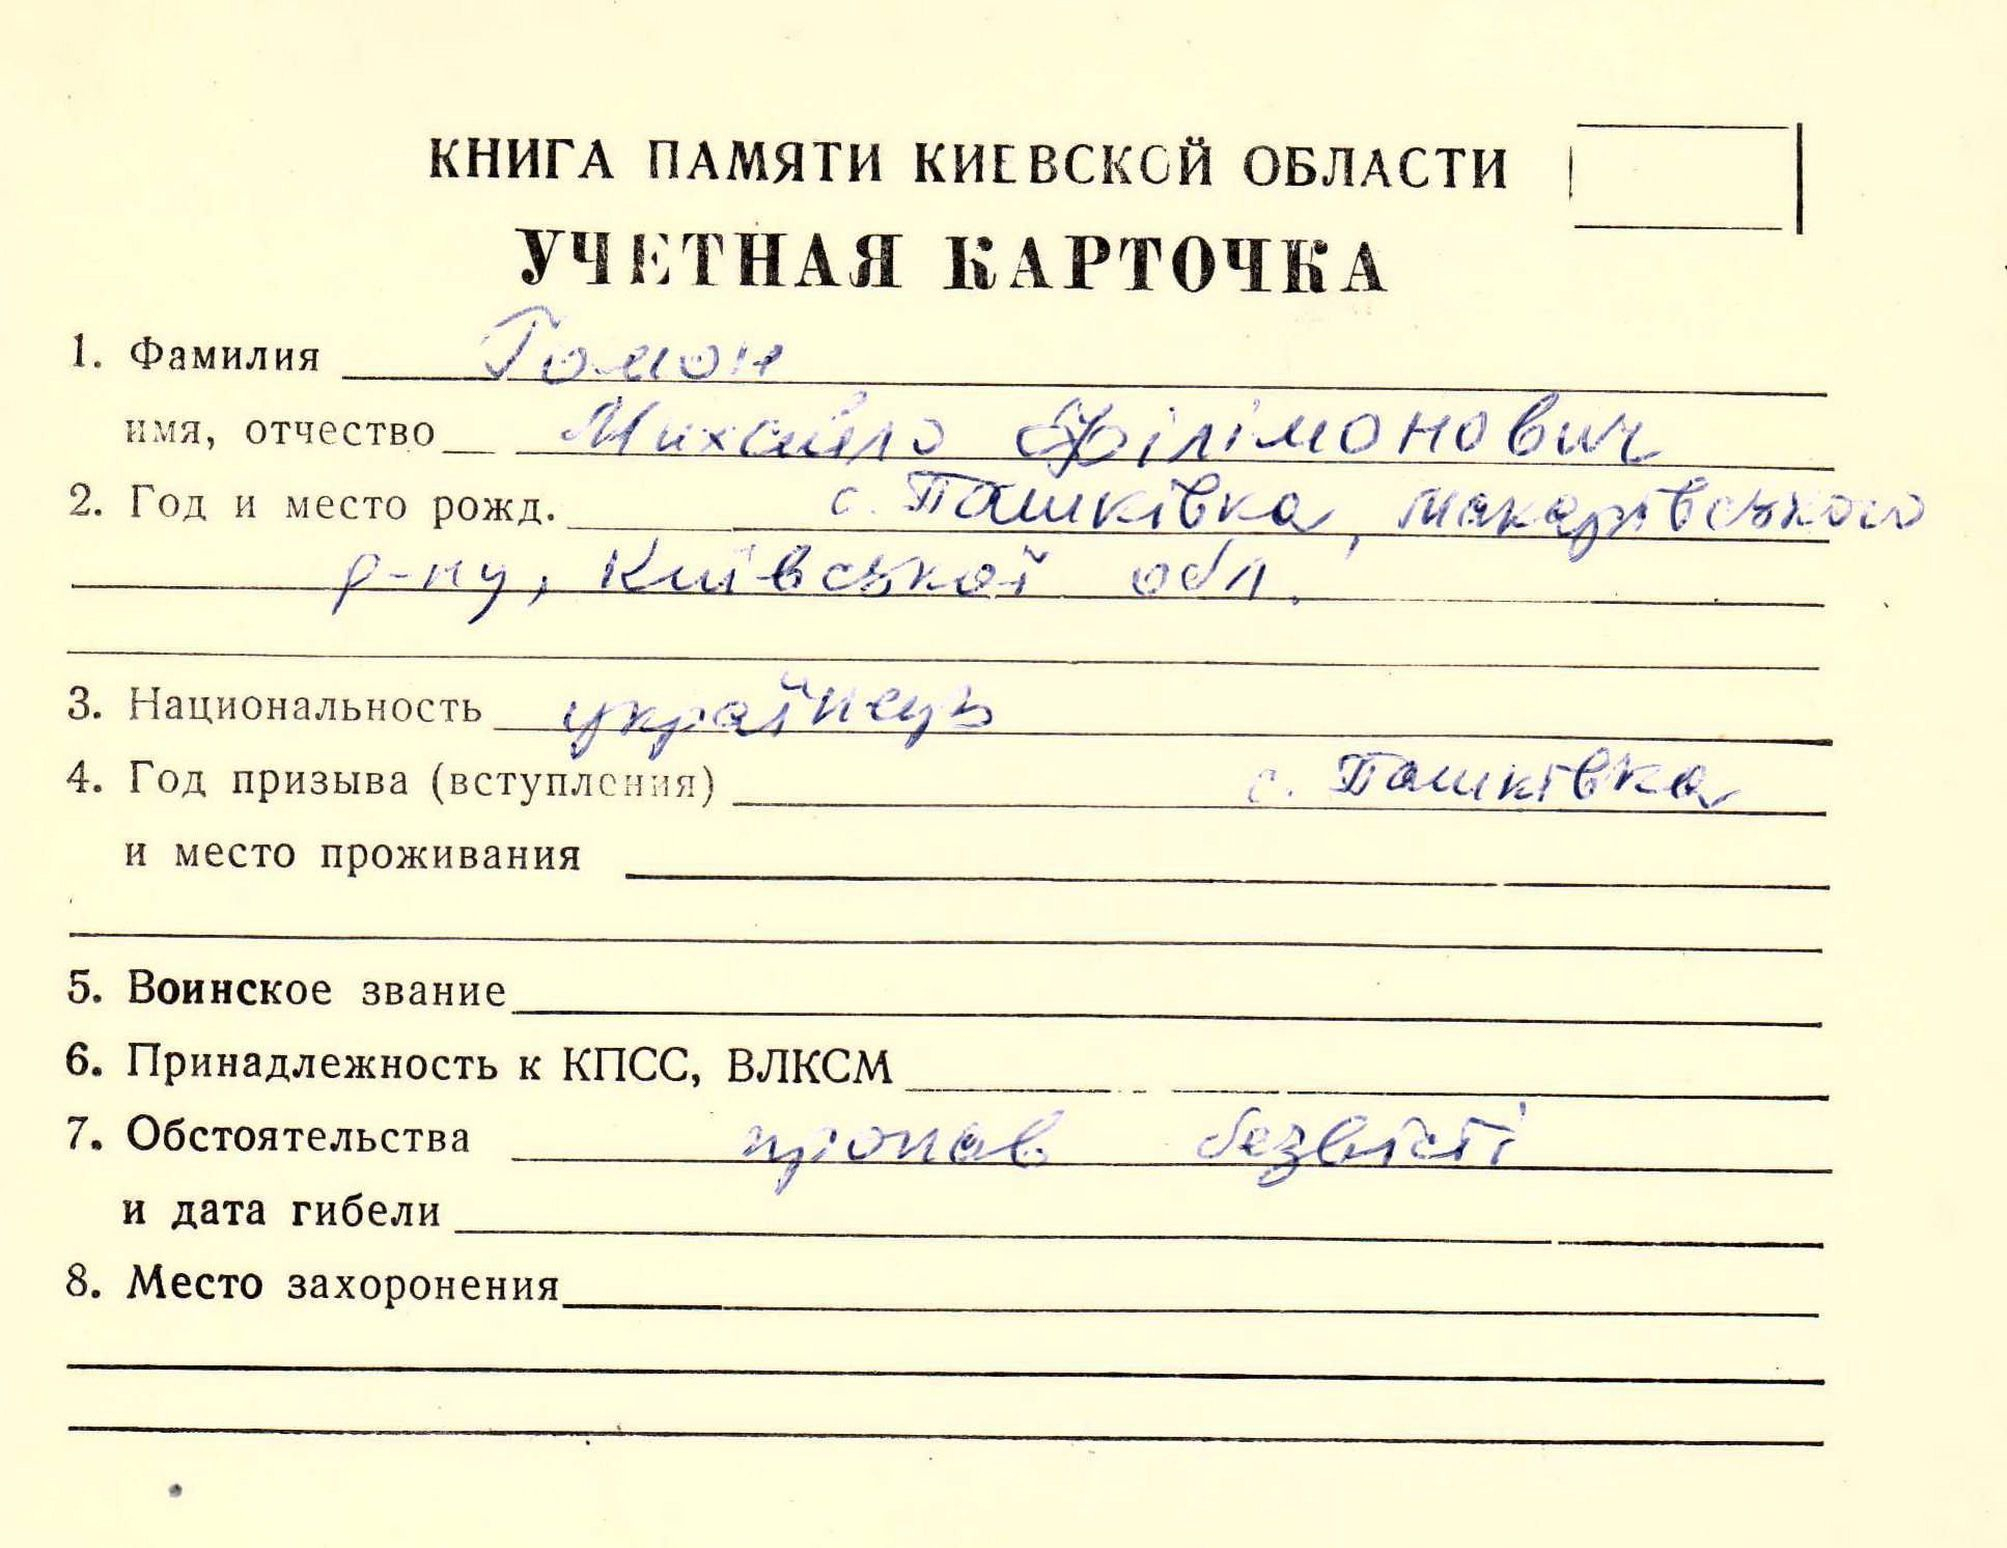 КНИГА ПАМЯТИ КИЕВСКОЙ ОБЛАСТИ
УЧЕТНАЯ КАРТОЧКА
1. Фамилия Гомон
имя, отчество Михайло Філімонович
2. Год и место рожд. с. Пашківка, Макарівського
р-ну, Київської обл.
3. Национальность українець
4. Год призыва (вступления) с. Пашківка
и место проживания
5. Воинское звание
6. Принадлежность к КПСС, ВЛКСМ
7. Обстоятельства пропав безвісті
и дата гибели
8. Место захоронения